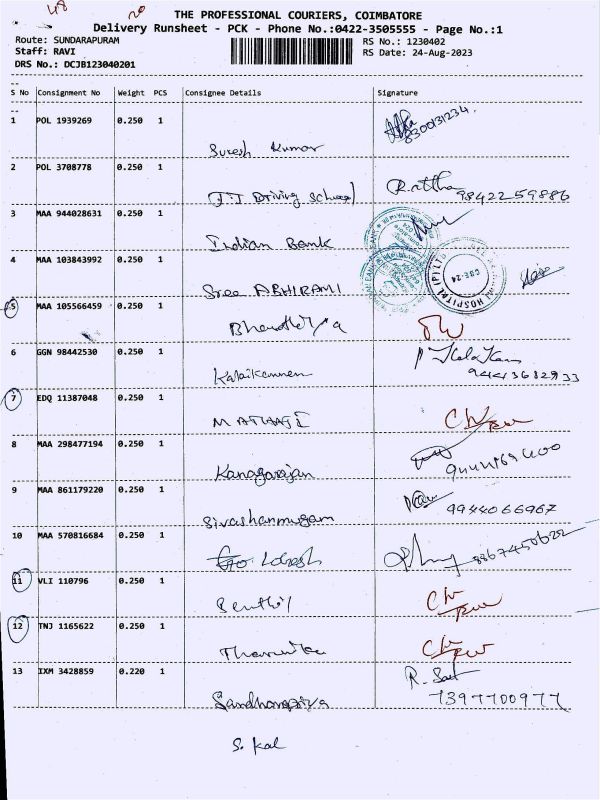 48 20
THE PROFESSIONAL COURIERS, COIMBATORE
Delivery Runsheet - PCK - Phone No.:0422-3505555 - Page No.:1
Route: SUNDARAPURAM RS No.: 1230402
Staff: RAVI RS Date: 24-Aug-2023
DRS No.: DCJB123040201
S No Consignment No Weight PCS Consignee Details Signature
1 POL 1939269 0.250 1
Suresh Kumar
2 POL 3708778 0.250 1
Driving School 9842259886
3 MAA 944028631 0.250 1
Indian Bank
4 MAA 103843992 0.250 1
Sree ABHIRAMI
5 MAA 105566459 0.250 1
6 GGN 98442530 0.250 1
7 EDQ 11387048 0.250 1
8 MAA 298477194 0.250 1
Kanagarajan
9 MAA 861179220 0.250 1
Sivashanmugam 9944066967
10 MAA 570816684 0.250 1
11 VLI 110796 0.250 1
Senthil
12 TNJ 1165622 0.250 1
13 IXM 3428859 0.220 1
7397700977
S. Kal